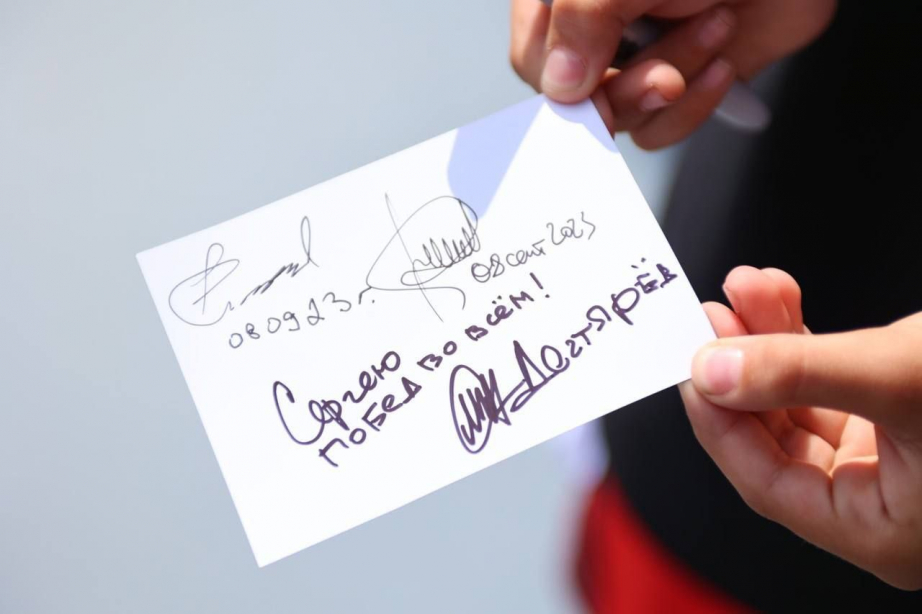 08 09 23 г.
08 сент 2023
Сергею
ПОБЕД ВО ВСЁМ!
Дегтярёв